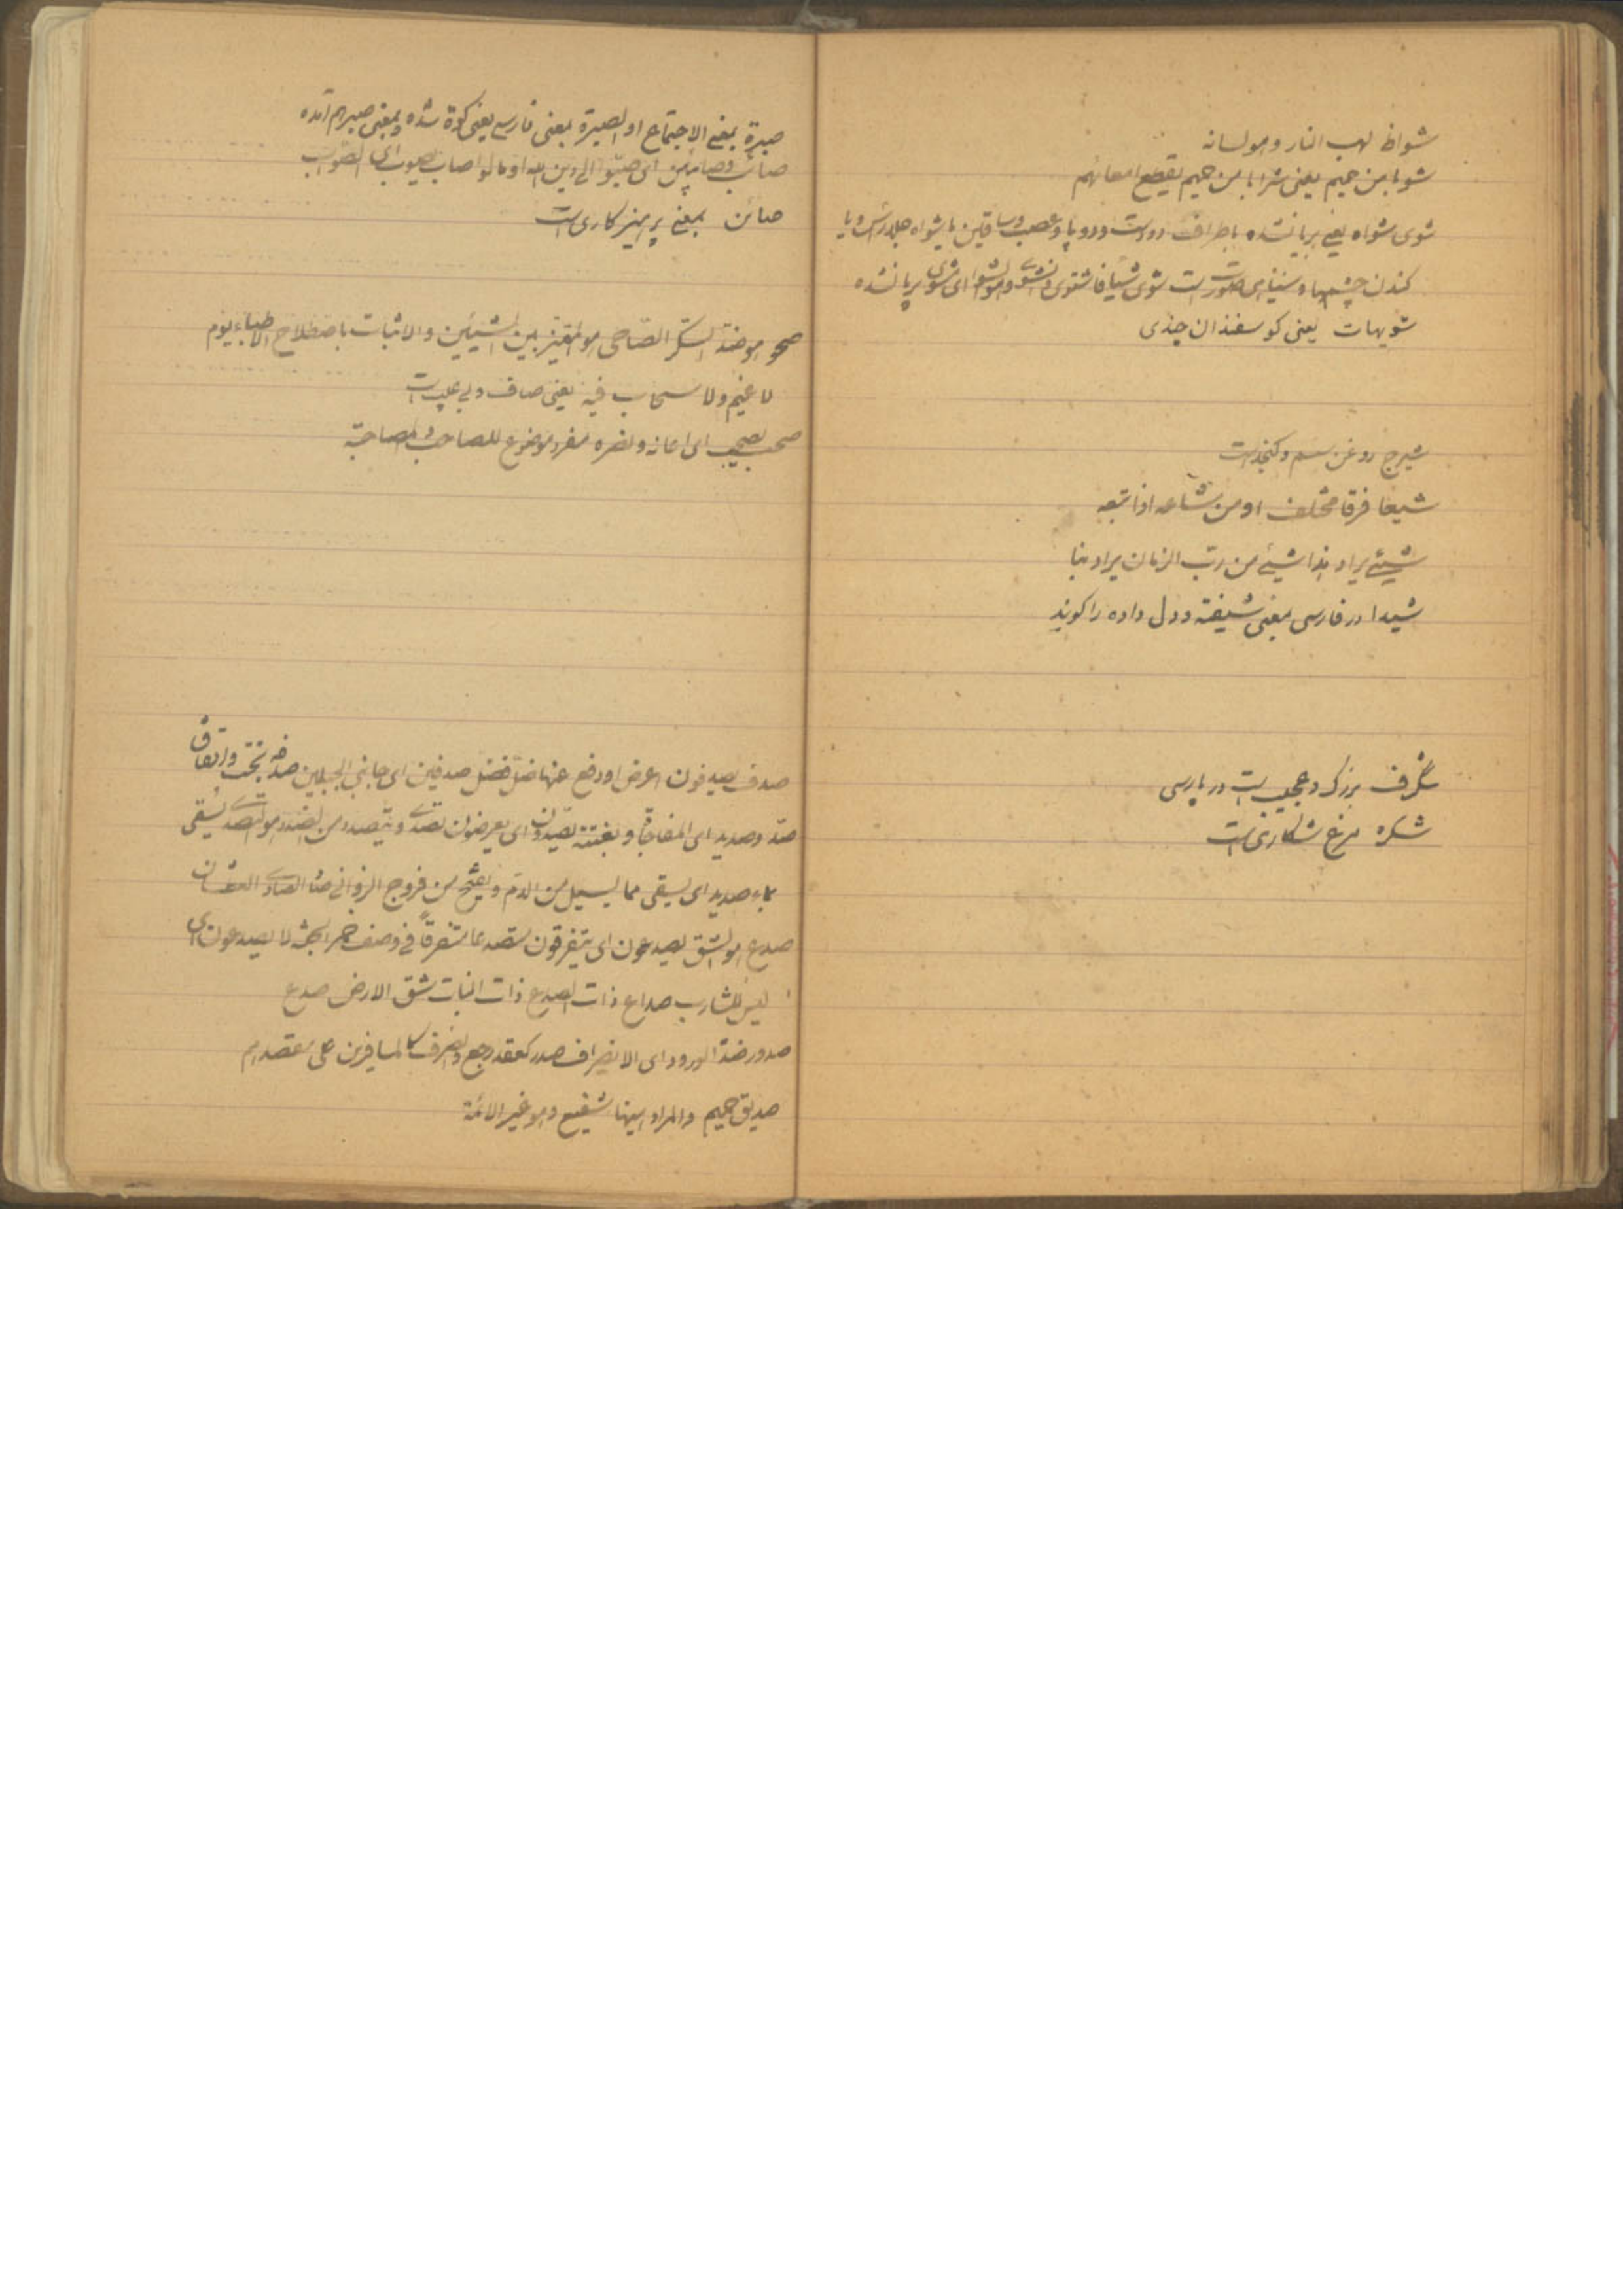 شواظ لهب النار و هو لسانه
شوبا من حمیم یعنی شرابا من حمیم یقطع امعائهم
شوی شواه یعنی بریان شده باطراف دو دست و دو پا و عصب و ساقین یا شواه جلد رأس و یا
کندن چشمها و سیاهی صورت است شوی شیا فاشتوی و انشوی و هو الشواء ای شوی بریان شده
شویهات یعنی کوسفندان چندی
شیرج روغن سمسم و کنجد است
شیعا فرقا مختلف او من شاعه اذا تبعه
شیئ یراد هذا شیئ من ریب الزمان یراد بنا
شیدا در فارسی بمعنی شیفته و دل داده را کویند
شگرف بزرک و عجیب است در پارسی
شکره مرغ شکاری است
صبرة بمعنی الاجتماع او الصبرة بمعنی فارسی یعنی کوة شده و بمعنی صبر هم آمده
صائب و صابئین ای صبئوا الی دین الله او مالوا صاب یصوب ای الصواب
صائن بمعنی پرهیز کاری است
صحو هو ضد السکر الصاحی هو الممیز بین الشیئین و الاثبات باصطلاح الاطباء یوم
لا غیم و لا سحاب فیه یعنی صاف و بی عیب است
صحب یصحب ای اعانه و نصره مفرد موضوع للصاحب و المصاحبة
صدف یصدفون اعرض او دفع عنها ضل فضل صدفین ای جانبی الجبلین صدفه بخت و اتفاق
صد و صدید ای المفاجاة و بغتة یصدون ای یعرضون تصدی و یتصدد من الصدد هو التصدی یسقی
بماء صدید ای یسقی مما یسیل من الدم و یقیح من فروج الزوانی الصادی العطشان
صدع هو الشق یصدعون ای یتفرقون متصدعا متفرقاً فی وصف خمر الجنة لا یصدعون ای
لیس للشارب صداع ذات الصدع ذات النبات شق الارض صدع
صدور ضد الورود ای الانصراف صدر کعقد رجع و انصرف کالمسافرین علی مقصدهم
صدیق حمیم و المراد ههنا شفیع و هو غیر الائمة